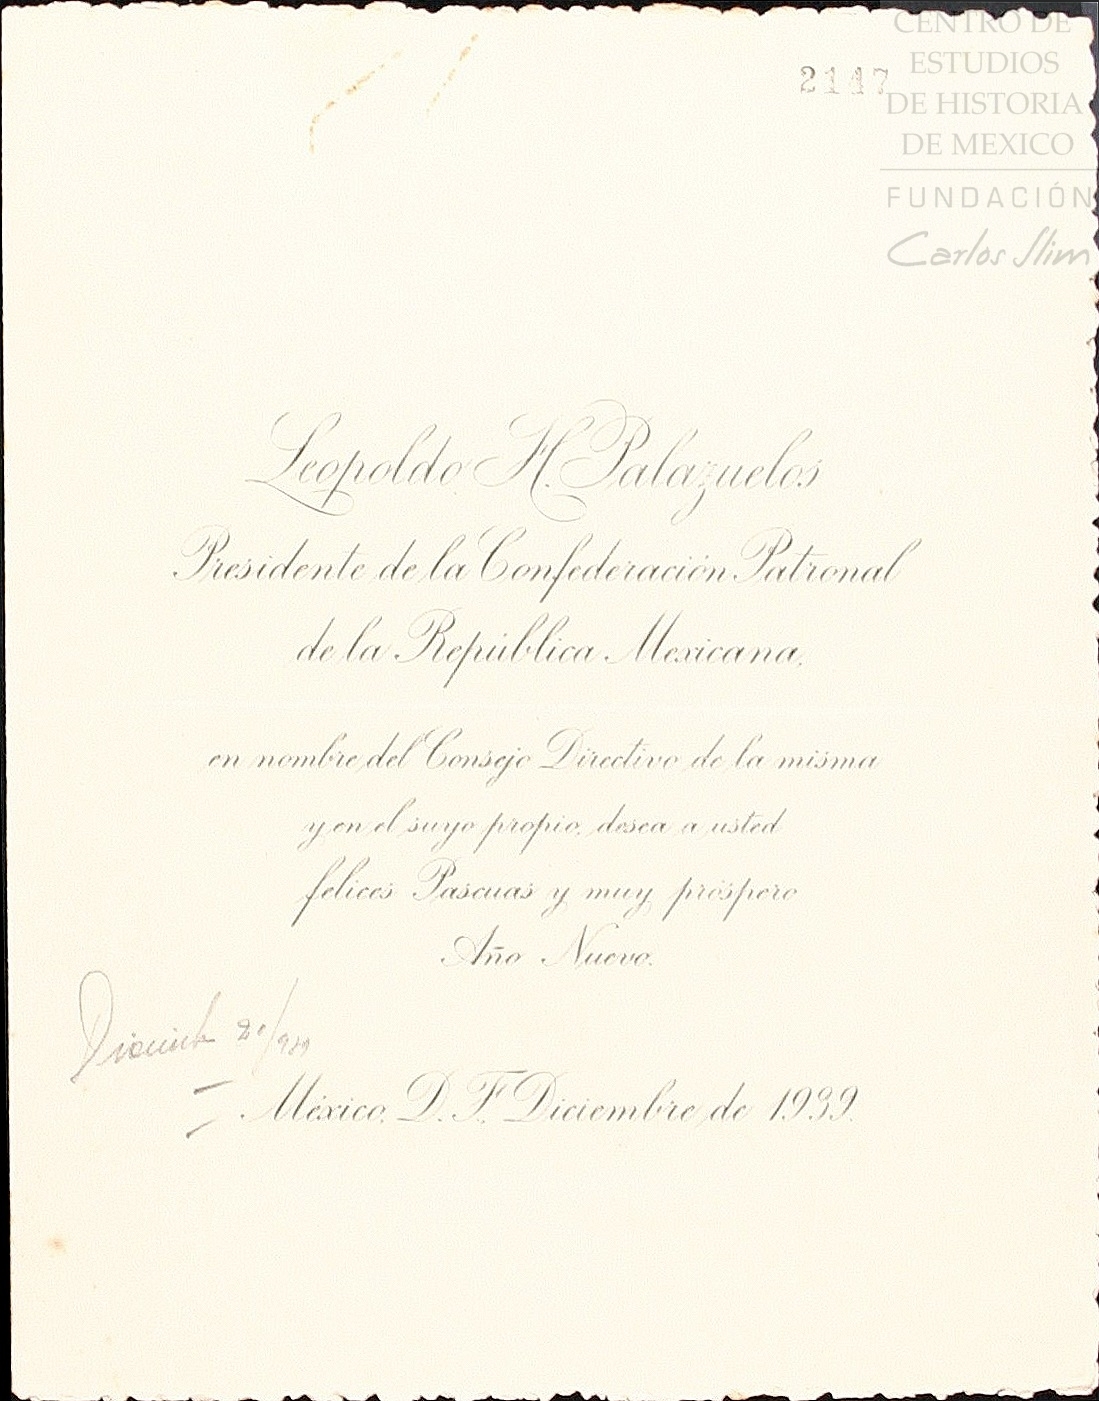 2147
CENTRO DE
ESTUDIOS
DE HISTORIA
DE MEXICO
FUNDACIÓN
Carlos Slim
Leopoldo H. Palazuelos
Presidente de la Confederación Patronal
de la República Mexicana,
en nombre del Consejo Directivo de la misma
y en el suyo propio, desea a usted
felices Pascuas y muy próspero
Año Nuevo.
México, D. F. Diciembre de 1939.